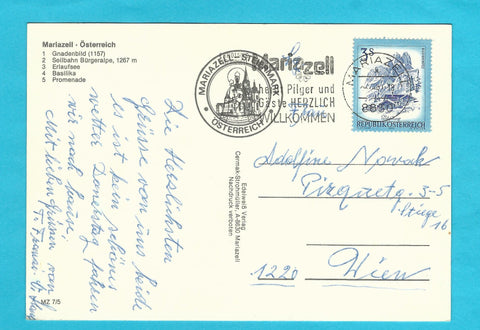 Mariazell · Österreich
1 Gnadenbild (1157)
2 Seilbahn Bürgeralpe, 1267 m
3 Erlaufsee
4 Basilika
5 Promenade
MARIAZELL · STEIERMARK
ÖSTERREICH
Mariazell
Pilger und
Gäste HERZLICH
WILLKOMMEN
MARIAZELL
8630
3 S
REPUBLIK ÖSTERREICH
Die Herzlichsten
Grüsse von uns beide
es ist kein schönes
wetter Donnerstag fahren
wir nach hause.
Mit lieben grüssen von
Edelweiß Verlag
Cermak-Strohmüller, A-8630 Mariazell
Nachdruck verboten
Adolfine Nowak
3-5
Stiege 16
1220 Wien
MZ 7/5